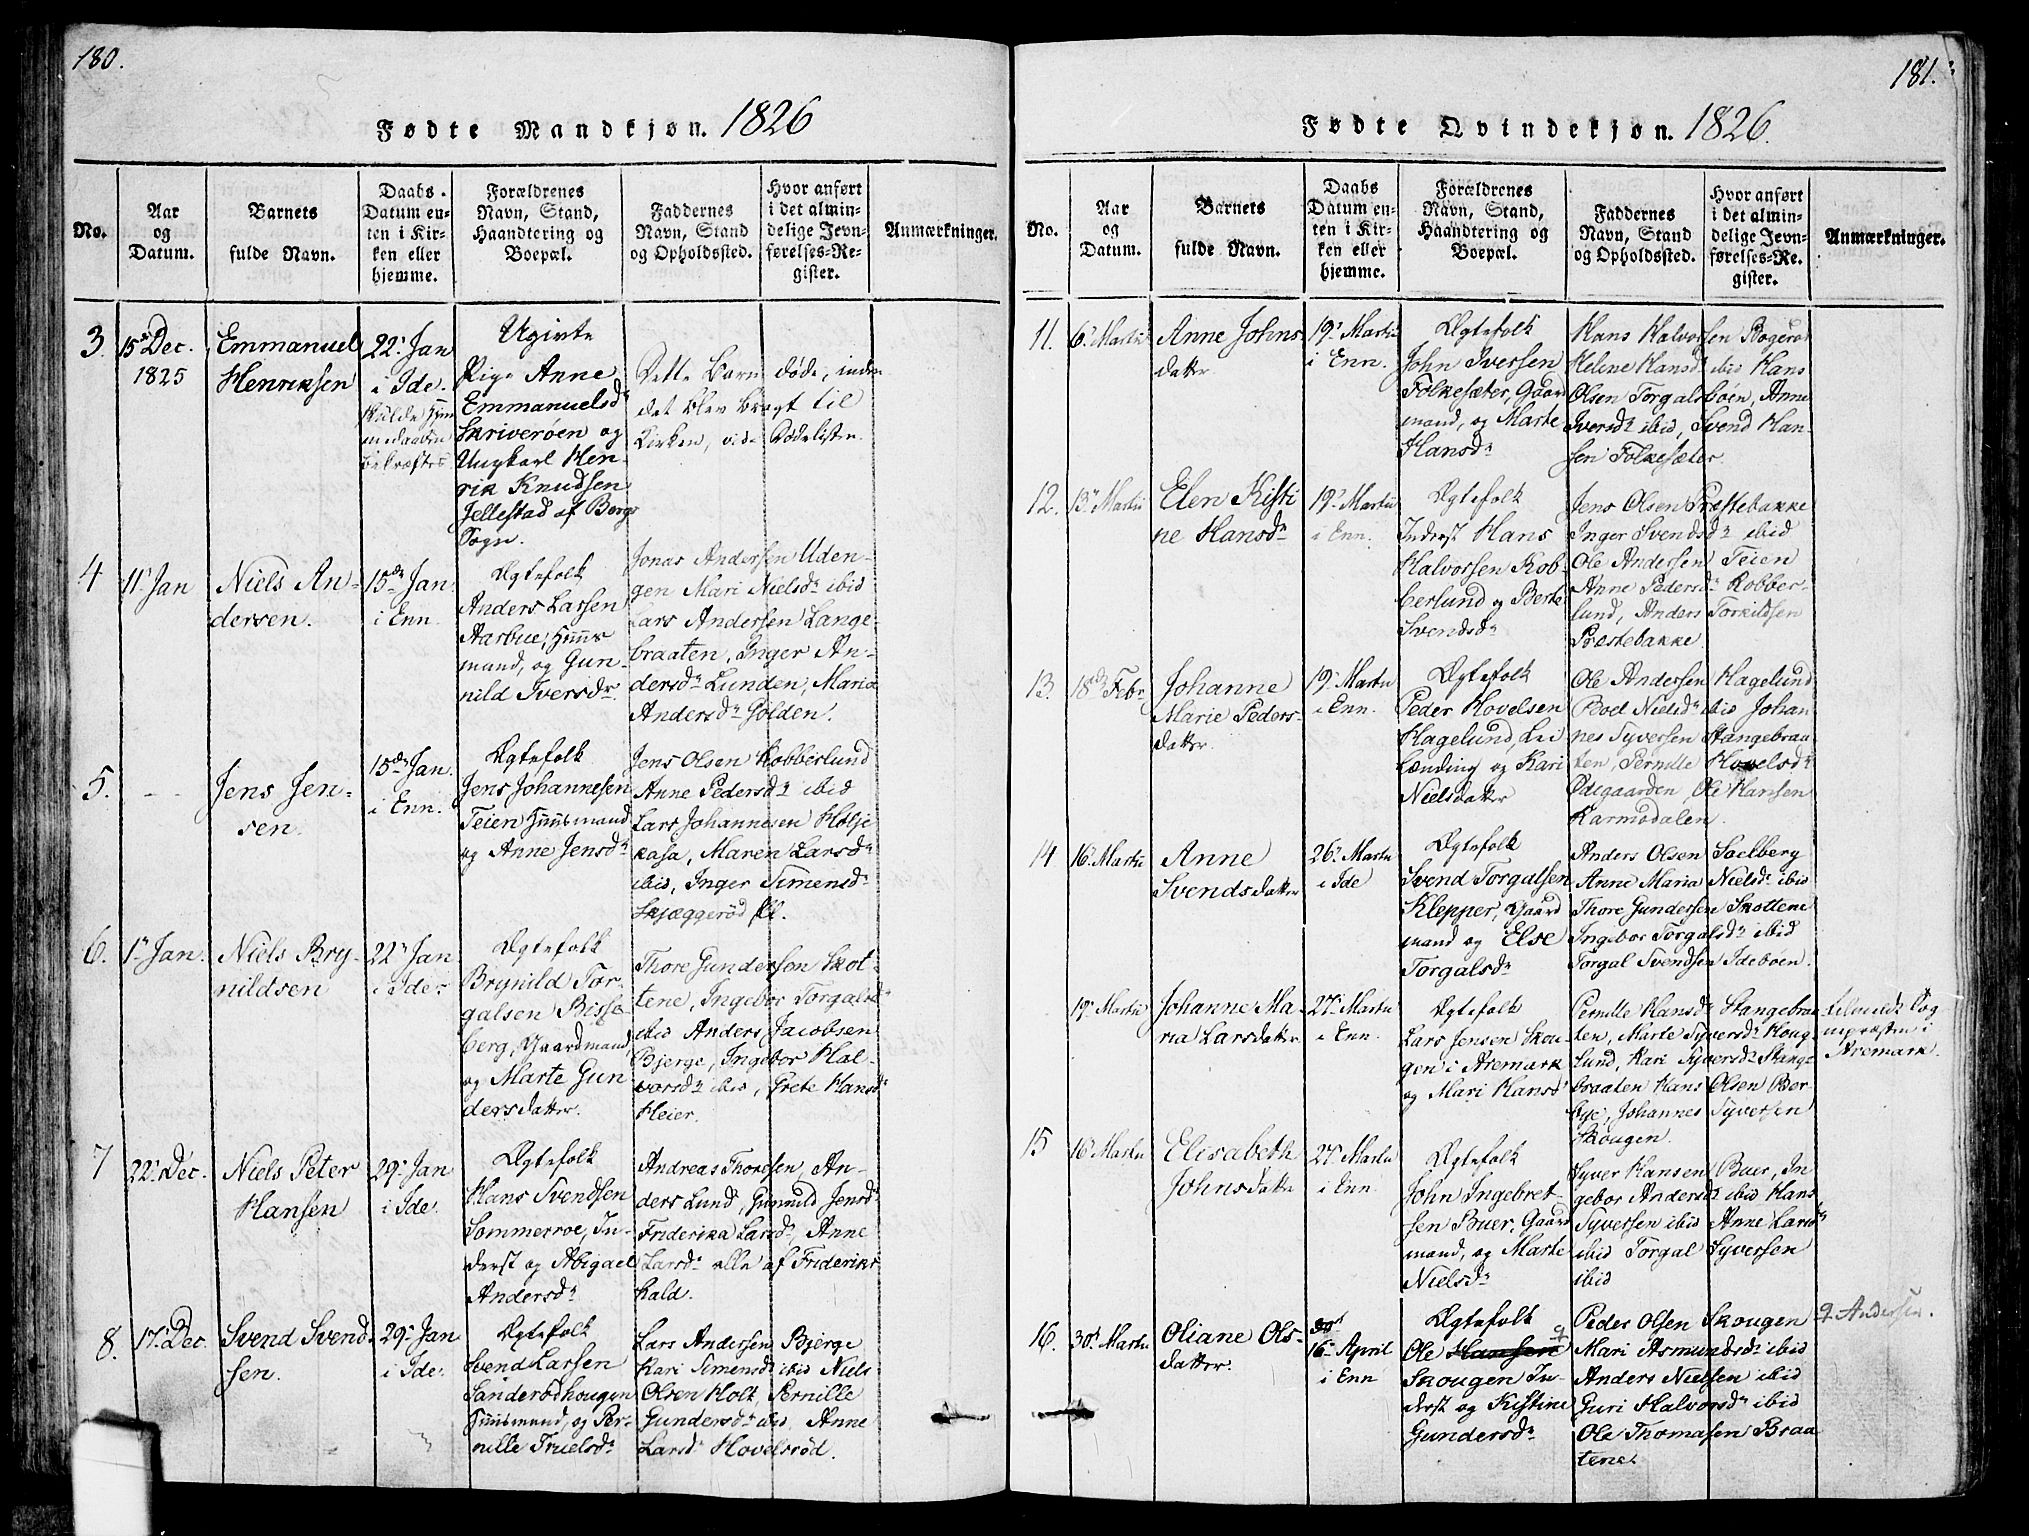 180.
Fødte Mandkjøn. 1826
No.
Aar
og
Datum.
Barnets
fulde Navn.
Daabs-
Datum en-
ten i Kir-
ken eller
hjemme.
Forældrenes
Navn, Stand,
Haandtering og
Boepæl.
Faddernes
Navn, Stand
og Opholdssted.
Hvor anført
i det almin-
delige Jevn-
førelses-Re-
gister.
Anmærkninger.
3.
15de Dec.
1825
Emmanuel
Henriksen
22. Jan
i Ide.
Ugivte
Pige Anne
Emmanuelsdr
Skriverøen og
Ungkarl Hen-
rik Knudsen
Jellestad af Bergs
Sogn.
Dette Barn døde, inden
det blev bragt til
Kirken, vide Dødelisten.
4
11. Jan
Niels An-
dersen.
15de Jan.
i Enn.
Ægtefolk
Anders Larsen
Aarbue, Huus
mand, og Gun-
nild Iversdr
Jonas Andersen Uden-
gen Mari Nielsdr ibid
Lars Andersen Lange-
braaten, Inger An-
dersdr Lunden, Maria
Andersdr Holden.
5.
- -
Jens Jen-
sen.
15de Jan.
i Enn.
Ægtefolk
Jens Johannesen
Teien Huusmand
og Anne Jensdr
Jens Olsen Kobberlund
Anne Pedersdr ibid
Lars Johannesen Holje
kasa, Maren Larsdr
ibid, Inger Simensdr
Skjæggerød
6.
1. Jan.
Niels Bry-
nildsen
22. Jan
i Ide.
Ægtefolk
Brynild Tor-
galsen Bisse
berg, Gaardmand,
og Marte Gun
dersdatter.
Thore Gundersen Skot-
tene, Ingebor Torgalsdr
ibid Anders Jacobsen
Bjerge, Ingebor Hal-
vorsdr ibid, Grete Hansdr
Heier.
7
22. Dec.
Niels Peter
Hansen
29. Jan
i Ide.
Ægtefolk
Hans Svendsen
Sommerroe, In-
derst og Abigael
Andersdr
Andreas Thoresen, An-
ders Lund, Gunnild Jensdr
Friderika Larsdr, Anne
Larsdr alle af Frideriks
hald.
8.
17. Dec.
Svend Svend-
sen.
29. Jan
i Ide.
Ægtefolk
Svend Larsen
Sanderødhougen
Huusmand, og Per-
nille Truelsdr
Lars Andersen Bjerge
Kari Simensdr ibid Niels
Olsen Holt, Pernille
Gundersdr ibid, Anne
Larsdr Hovelsrød.
181.
Fødte Qvindekjøn. 1826.
No.
Aar
og
Datum.
Barnets
fulde Navn.
Daabs
Datum en-
ten i Kir-
ken eller
hjemme.
Forældrenes
Navn, Stand,
Haandtering og
Boepæl.
Faddernes
Navn, Stand
og Opholdssted.
Hvor anført
i det almin-
delige Jevn-
førelses-Re-
gister.
Anmærkninger.
11.
6. Martii
Anne Johns
datter
19. Martii
i Enn.
Ægtefolk
John Iversen
Folkesæter, Gaard
mand, og Marte
Hansdr
Hans Halvorsen Bøgerød
Helene Hansdr ibid Hans
Olsen Torgalsbøen, Anne
Iversdr ibid, Svend Han-
sen Folkesæter.
12.
13. Martii
Elen Kisti
ne Hansdr
19. Martii
i Enn.
Ægtefolk
Inderst Hans
Halvorsen Kob-
berlund og Berte
Svendsdr
Jens Olsen Præstebakke
Inger Svendsdr ibid
Ole Andersen Teien
Anne Pedersdr Kobber-
lund, Anders Torkildsen
Præstebakke
13.
18de Febr.
Johanne
Marie Peders-
datter.
19. Martii
i Enn.
Ægtefolk
Peder Hovelsen
Hagelund, Lei
lænding og Kari
Nielsdatter
Ole Andersen Hagelund
Boel Nielsdr ibid Johan-
nes Syversen Stangebraa-
ten, Pernille Hovelsdr
Ødegaarden, Ole Hansen
Karmodalen.
14
16. Martii
Anne
Svendsdatter
26. Martii
i Ide
Ægtefolk
Svend Torgalsen
Klepper, Gaard
mand og Else
Torgalsdr
Anders Olsen Soelberg
Anne Maria Nielsdr ibid
Thore Gundersen Skottene
Ingebor Torgalsdr ibid
Torgal Svendsen Ideboen.
19. Martii
Johanne Ma
ria Larsdatter
27. Martii
i Enn.
Ægtefolk
Lars Jensen Skou-
gen i Aremark
og Mari Hansdr
Pernille Hansdr Stangebraa
ten, Marte Syversdr Houg-
lund, Kari Syversdr Stange
braaten Hans Olsen Bør-
bye, Johannes Syversen
Skougen.
tilmeldt Sog
nepræsten i
Aremark.
15
16. Martii
Elisabeth
Johnsdatter
27. Martii
i Enn.
Ægtefolk
John Ingebret-
sen Buer, Gaard
mand, og Marte
Nielsdr
Syver Hansen Buer, In
gebor Andersdr ibid Hans
Syversen ibid Anne Larsdr
ibid Torgal Syversen
ibid
16.
30. Martii
Oliane Ols-
datter.
16. April
i Enn
Ægtefolk
Ole Hansen
Skougen In-
derst og Kistine
Gundersdr
Peder Olsen Skougen
Mari Asmundsdr ibid
Anders Nielsen ibid
Guri Halvorsdr ibid
Ole Thomasen Braa
tene.
Andersen.